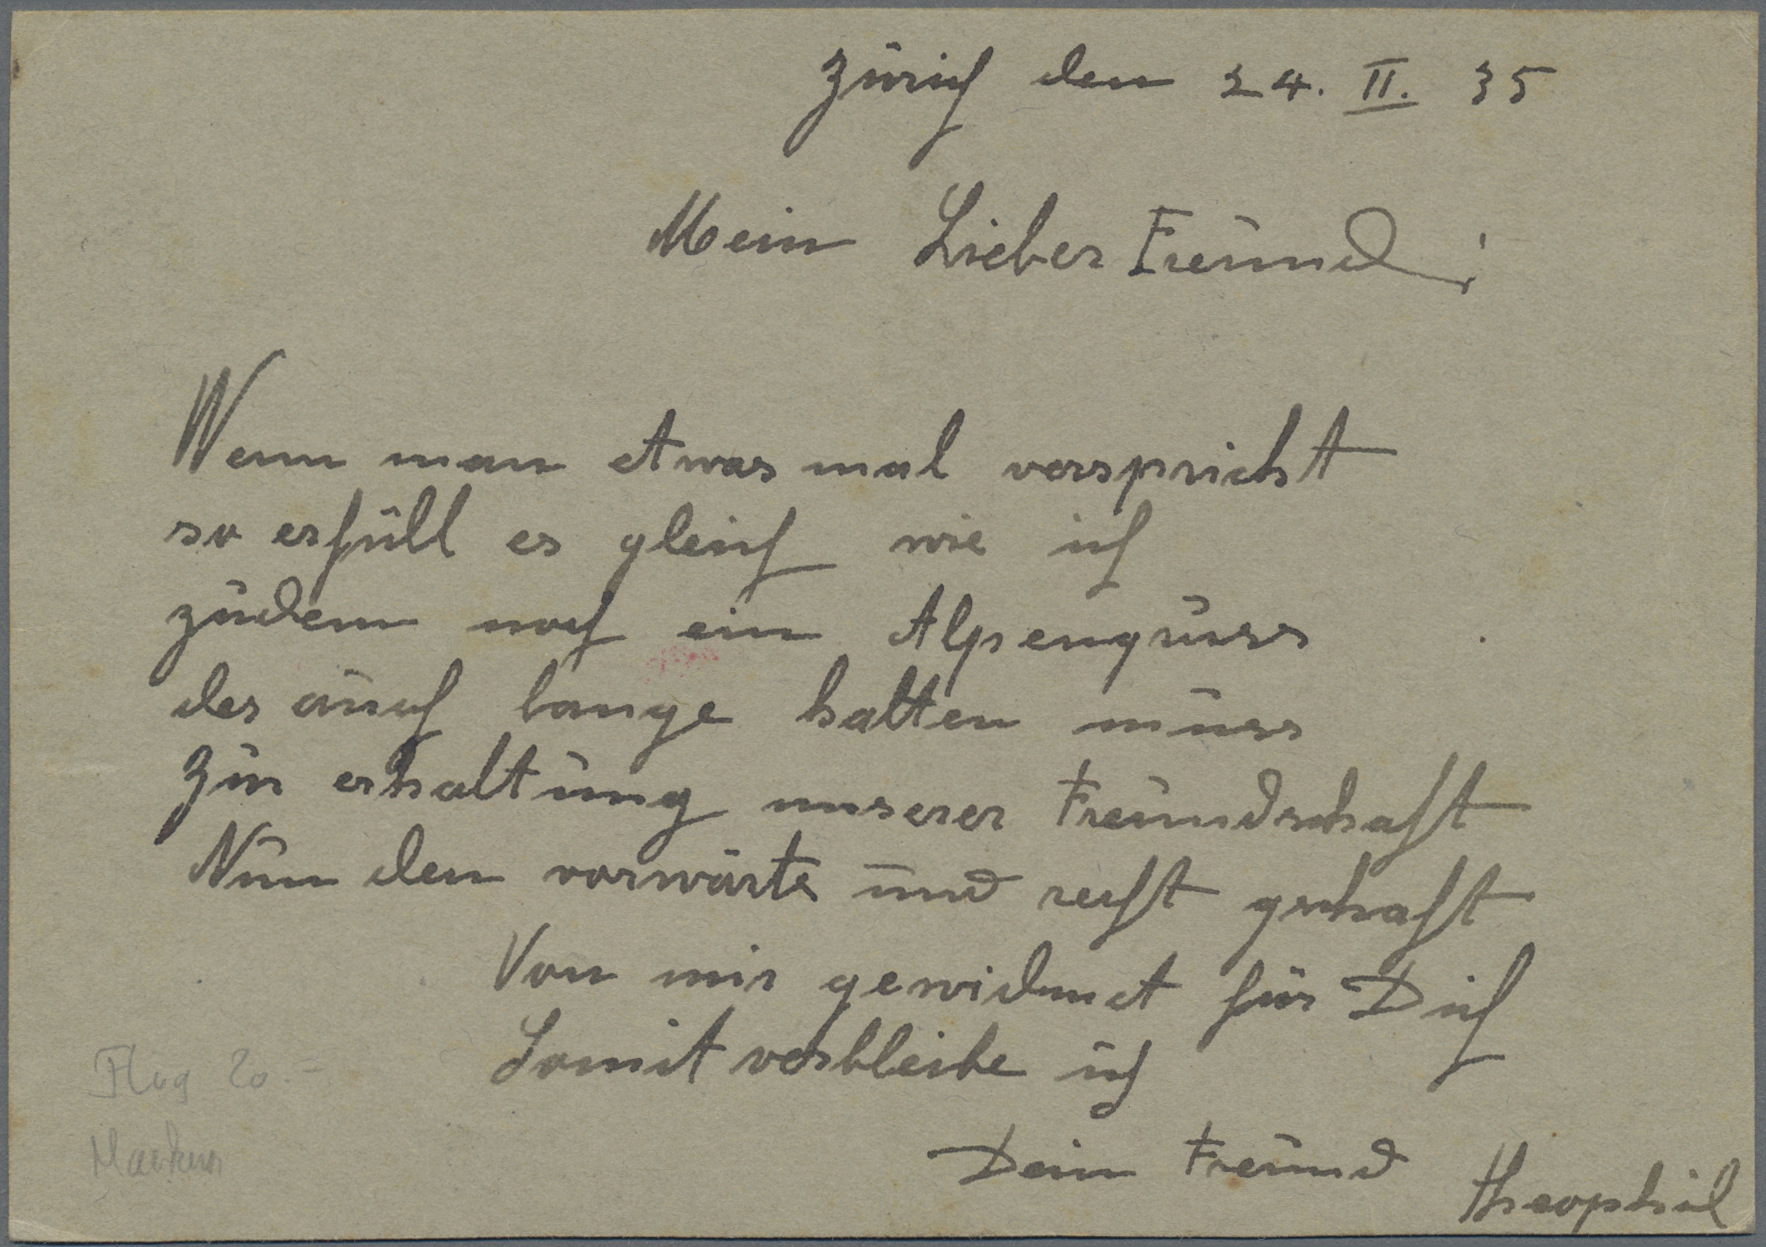 Zürich den 24. II. 35
Mein Lieber Freund!
Wenn man etwas mal verspricht
so erfüll es gleich wie ich
zudem noch ein Alpengruss
der auch lange halten muss
Zur erhaltung unserer Freundschaft
Nun den vorwärts und recht gschafft
Von mir gewidmet für Dich
Somit verbleibe ich
Dein Freund Theophil
Flug 20.-